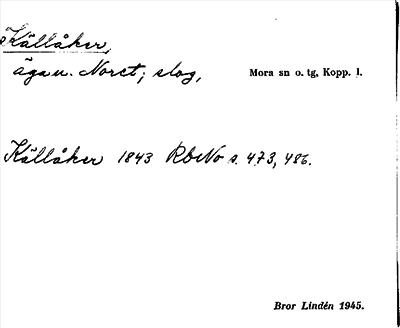 Källåker,
ägan. Noret; slog, Mora sn o. tg, Kopp. l.
Källåker 1843 RbNo s. 473, 486.
Bror Lindén 1945.